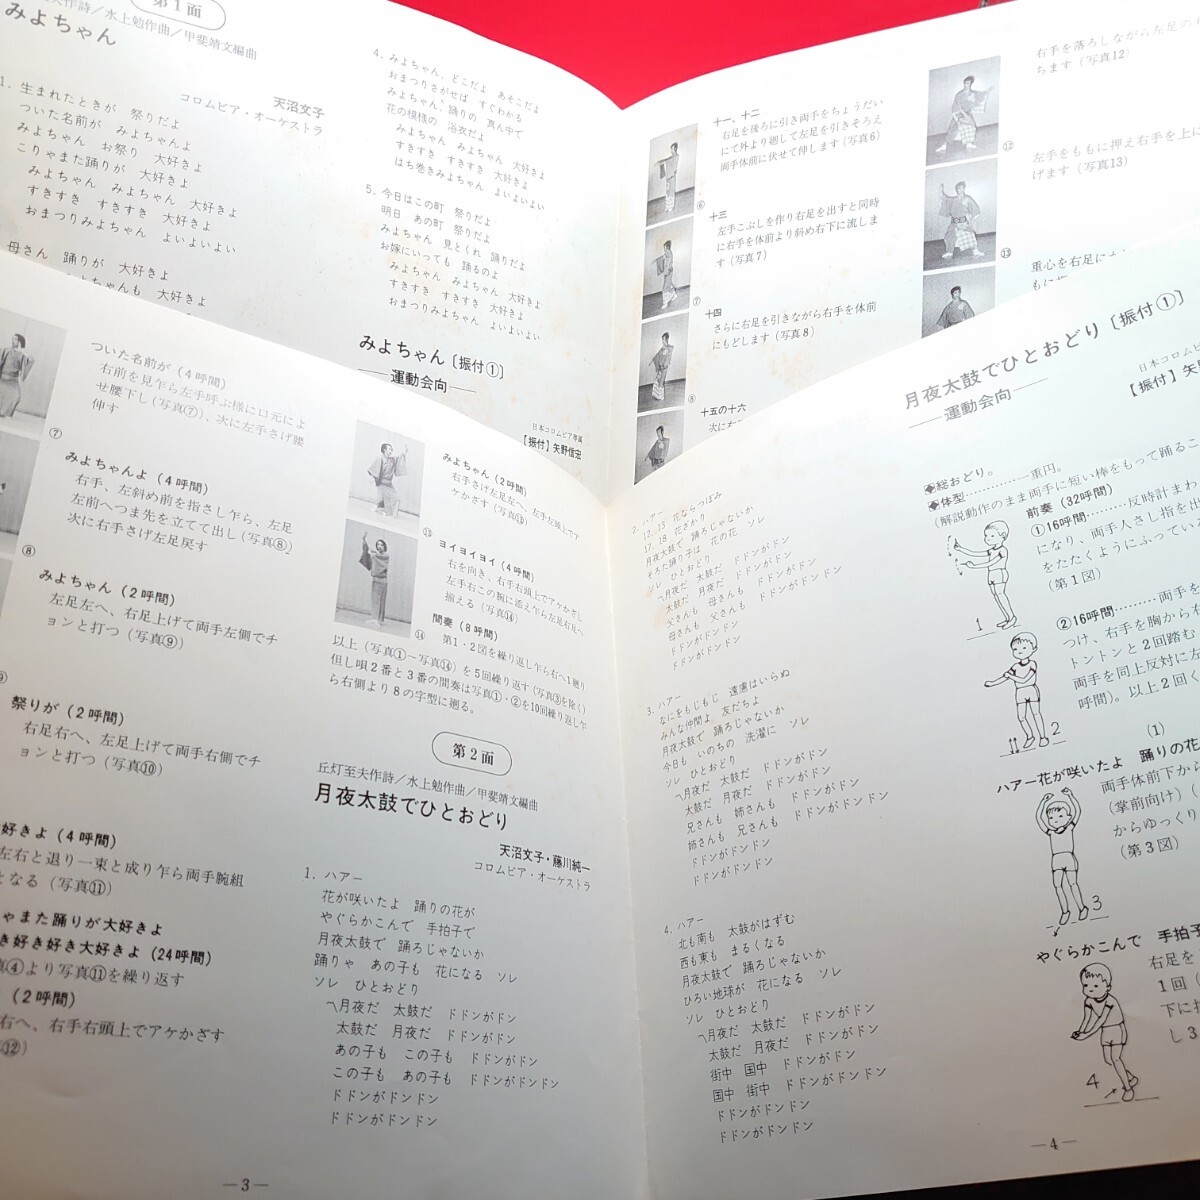 第1面
夫作詩／水上勉作曲／甲斐靖文編曲
みよちゃん
天沼文子
コロムビア・オーケストラ
1. 生まれたときが 祭りだよ
ついた名前が みよちゃんよ
みよちゃん お祭り 大好きよ
こりゃまた踊りが 大好きよ
みよちゃん みよちゃん 大好きよ
すきすき すきすき 大好きよ
おまつりみよちゃん よいよいよい
母さん 踊りが 大好きよ
4. みよちゃん、どこだよ あそこだよ
おまつりさがせば すぐわかる
みよちゃん、踊りの 真ん中で
花の模様の 浴衣だよ
みよちゃん みよちゃん 大好きよ
すきすき すきすき 大好きよ
はち巻きみよちゃん よいよいよい
5. 今日はこの町 祭りだよ
明日 あの町 祭りだよ
みよちゃん 見とくれ 踊りだよ
お嫁にいっても 踊るのよ
みよちゃん みよちゃん 大好きよ
すきすき すきすき 大好きよ
おまつりみよちゃん よいよいよい
みよちゃん〔振付①〕
——運動会向——
日本コロムビア専属
【振付】矢野信宏
十一、十二
右足を後ろに引き両手をちょうだい
にて外より廻して左足を引きそろえ
両手体前に伏せて伸します(写真6)
⑥
十三
左手こぶしを作り右足を出すと同時
に右手を体前より斜め右下に流しま
す(写真7)
⑦
十四
さらに右足を引きながら右手を体前
にもどします(写真8)
⑧
十五の十六
右手を落ろしながら左足の
ちます(写真12)
⑫
左手をももに押え右手を上に
げます(写真13)
⑬
重心を右足に
ついた名前が(4呼間)
右前を見乍ら左手呼ぶ様に口元によ
せ腰下し(写真⑦)、次に左手さげ腰
伸す
⑦
みよちゃんよ(4呼間)
右手、左斜め前を指さし乍ら、左足
左前へつま先を立てて出し(写真⑧)
次に右手さげ左足戻す
⑧
みよちゃん(2呼間)
左足左へ、右足上げて両手左側でチ
ョンと打つ(写真⑨)
⑨
祭りが(2呼間)
右足右へ、左足上げて両手右側でチ
ョンと打つ(写真⑩)
好きよ(4呼間)
左右と退り一束と成り乍ら両手腕組
となる(写真⑪)
ゃまた踊りが大好きよ
き好き好き大好きよ(24呼間)
④より写真⑪を繰り返す
(2呼間)
右へ、右手右頭上でアケかざす
⑫)
みよちゃん(2呼間)
右手さげ左足左へ、左手左頭上でア
ケかざす(写真⑬)
⑬
ヨイヨイヨイ(4呼間)
右を向き、右手右頭上でアケかざし
左手右この腕に添え乍ら左足右足へ
揃える(写真⑭)
⑭
間奏(8呼間)
第1・2図を繰り返し乍ら右へ1廻り
以上(写真①ー写真⑭)を5回繰り返す(写真③を除く)
但し唄2番と3番の間奏は写真①・②を10回繰り返し乍
ら右側より8の字型に廻る。
第2面
丘灯至夫作詩／水上勉作曲／甲斐靖文編曲
月夜太鼓でひとおどり
天沼文子・藤川純一
コロムビア・オーケストラ
1. ハアー
花が咲いたよ 踊りの花が
やぐらかこんで 手拍子で
月夜太鼓で 踊ろじゃないか
踊りゃ あの子も 花になる ソレ
ソレ ひとおどり
〽月夜だ 太鼓だ ドドンがドン
太鼓だ 月夜だ ドドンがドン
あの子も この子も ドドンがドン
この子も あの子も ドドンがドンドン
ドドンがドンドン
ドドンがドンドン
—3—
2. ハアー
12、13 花ならつぼみ
17、18 花ざかり
月夜太鼓で 踊ろじゃないか
そろた踊り子は 花の花
ソレ ひとおどり ソレ
〽月夜だ 太鼓だ ドドンがドン
太鼓だ 月夜だ ドドンがドン
父さんも 母さんも ドドンがドン
母さんも 父さんも ドドンがドンドン
ドドンがドンドン
ドドンがドンドン
3. ハアー
なにをもじもじ 遠慮はいらぬ
みんな仲間よ 友だちよ
月夜太鼓で 踊ろじゃないか
今日も いのちの 洗濯に ソレ
ソレ ひとおどり
〽月夜だ 太鼓だ ドドンがドン
太鼓だ 月夜だ ドドンがドン
兄さんも 姉さんも ドドンがドン
姉さんも 兄さんも ドドンがドンドン
ドドンがドンドン
ドドンがドンドン
4. ハアー
北も南も 太鼓がはずむ
西も東も まるくなる
月夜太鼓で 踊ろじゃないか
ひろい地球が 花になる ソレ
ソレ ひとおどり
〽月夜だ 太鼓だ ドドンがドン
太鼓だ 月夜だ ドドンがドン
街中 国中 ドドンがドン
国中 街中 ドドンがドンドン
ドドンがドンドン
ドドンがドンドン
月夜太鼓でひとおどり〔振付①〕
——運動会向——
日本コロムビ
【振付】矢野
◆総おどり。
◆体型…………一重円。
(解説動作のまま両手に短い棒をもって踊るこ
前奏(32呼間)
①16呼間………反時計まわ
になり、両手人さし指を出
をたたくようにふってい
(第1図)
1
②16呼間………両手を
つけ、右手を胸から
トントンと2回踏む
両手を同上反対に左
呼間)。以上2回く
2
(1)
ハアー花が咲いたよ 踊りの花
両手体前下から
(掌前向け)(
からゆっくり
(第3図)
3
やぐらかこんで 手拍子
右足を
1回(
下に打
し3
4
—4—